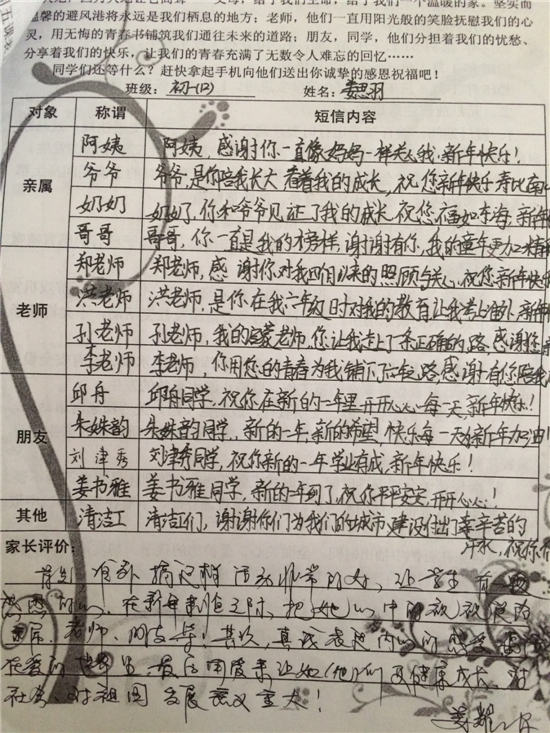 温馨的避风港将永远是我们栖息的地方；老师，他们一直用阳光般的笑脸抚慰我们的心
灵，用无悔的青春书铺筑我们通往未来的道路；朋友，同学，他们分担着我们的忧愁、
分享着我们的快乐，让我们的青春充满了无数令人难忘的回忆……
同学们还等什么？赶快拿起手机向他们送出你诚挚的感恩祝福吧！
班级：初一(12) 姓名：姜思羽
对象 称谓 短信内容
亲属
阿姨 阿姨，感谢你一直像妈妈一样关心我，新年快乐！
爷爷 爷爷，是你陪我长大，看着我的成长，祝您新年快乐 寿比南
奶奶 奶奶，你和爷爷见证了我的成长，祝您福如东海，新年
哥哥 哥哥，你一直是我的榜样，谢谢有你，我的童年更加精
老师
郑老师 郑老师，感谢你对我四个月以来的照顾与关心，祝您新年快
洪老师 洪老师，是你在我六年级时对我的教育让我考上 新年
孙老师 孙老师，我的启蒙老师，你让我走上了条正确的路，感谢您
李老师 李老师，你用您的青春为我铺下 路，感谢有您陪我
朋友
邱舟 邱舟同学，祝你在新的一年里开开心心每一天，新年快乐！
朱姝韵 朱姝韵同学，新的一年，新的希望，快乐每一天 新年加油！
刘津秀 刘津秀同学，祝你新的一年学业有成，新年快乐！
姜书雅 姜书雅同学，新的一年到了，祝你平平安安，开开心心！
其他 清洁工 清洁工们，谢谢你们为我们的城市建设付出了辛辛苦苦的
汗水，祝你
家长评价：
首先 活动非常的好，让学生有一颗
感恩的心，在新年来临之际，把她心中的
亲属、老师、朋友等！其次，真诚表达内心的
在爱的世界里， 让她(他)们 健康成长，对
社会、对祖国发展意义重大！